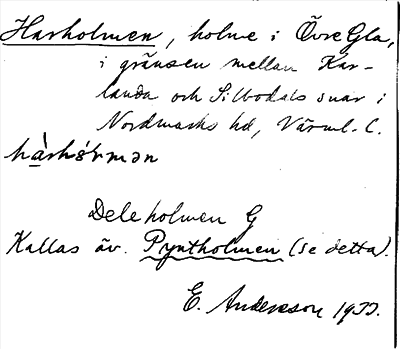 Harholmen, holme i Övre Gla,
i gränsen mellan Kar-
landa och Silbodals snar i
Nordmarks hd, Värml. l.
Dele holmen G
Kallas äv. Pyntholmen (se detta).
E. Andersson 1933.